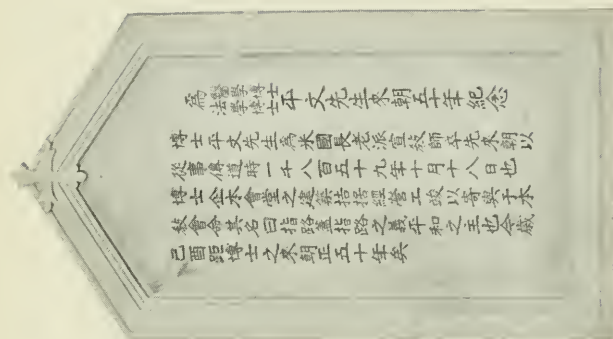 為醫學博士法學博士平文先生來朝五十年紀念
博士平文先生為米國長老派宣教師卒先來朝以
從事傳道時一千八百五十九年十月十八日也
博士企本會堂之建築拮据經營工竣以寄與于本
教會命其名曰指路蓋指路之義平和之主也今歳
己酉距博士之來朝正五十年矣